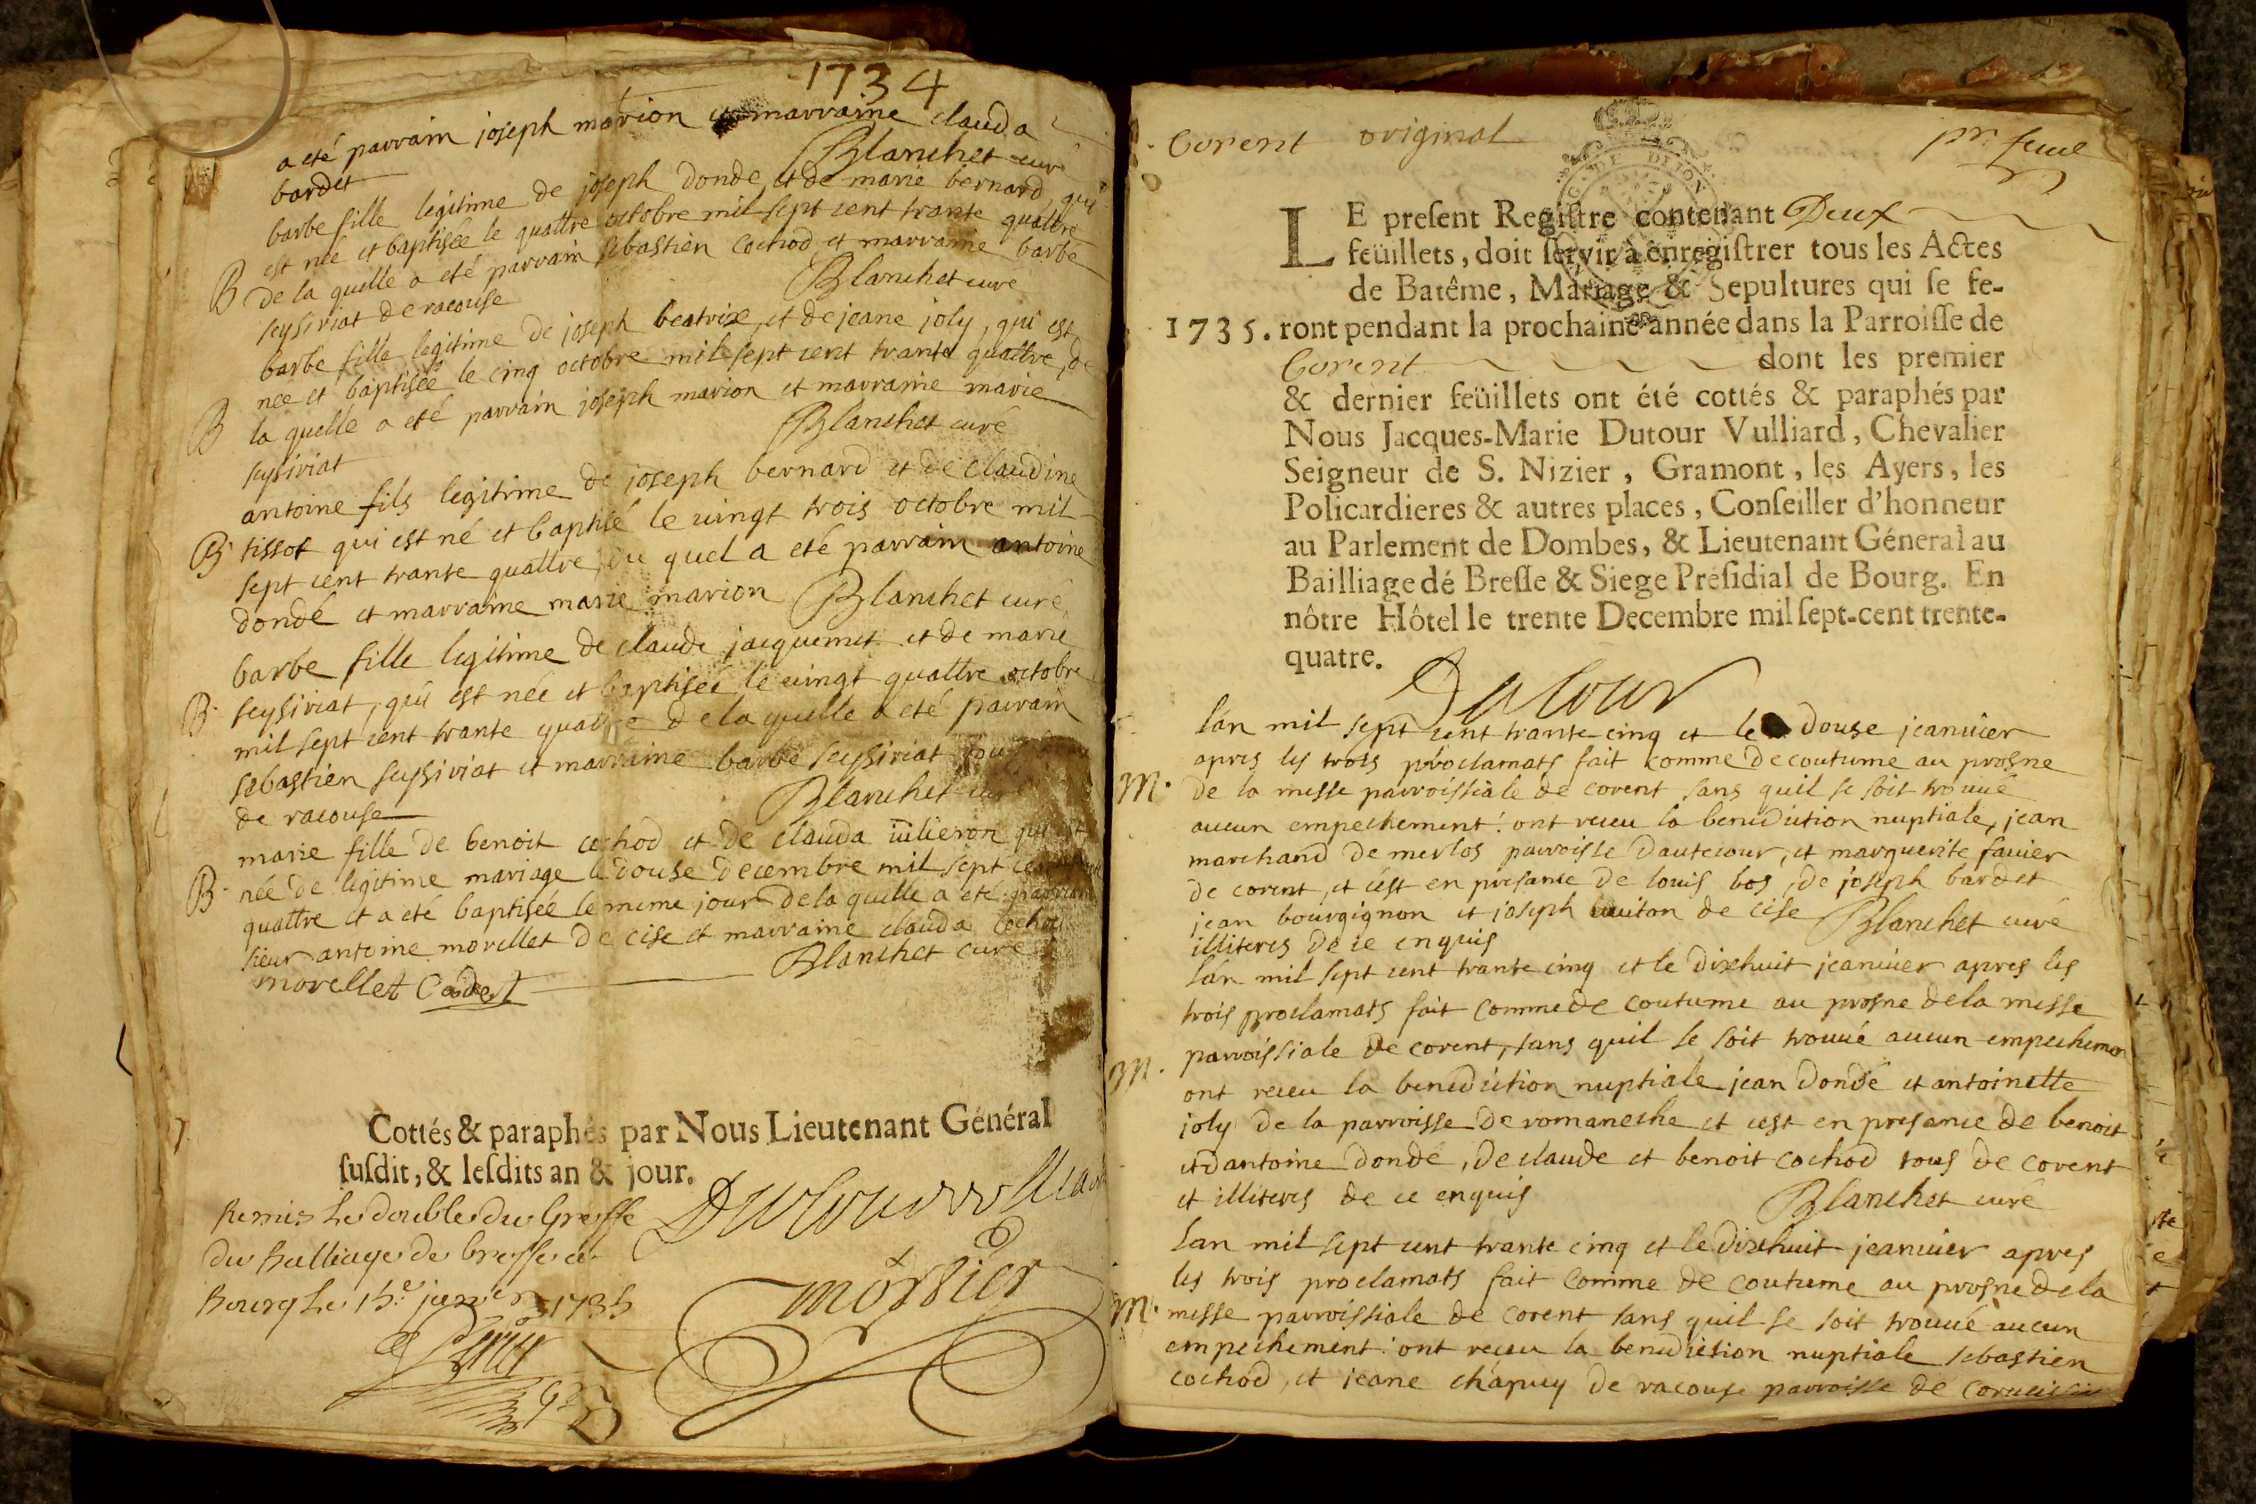 1734
a eté parrain joseph marion et marraine clauda
bardet Blanchet curé
barbe fille legitime de joseph donde, et de marie bernard, qui
est née et baptisée le quattre octobre mil sept cent trante quattre
B de la quelle a eté parrain sebastien cochod et marraine barbe
seysiriat de racouse Blanchet curé
barbe fille legitime de joseph beatrix, et de jeane joly, qui est
née et baptisée le cinq octobre mil sept cent trante quattre, de
B la quelle a eté parrain joseph marion et marraine marie
seysiriat Blanchet curé
antoine fils legitime de joseph bernard et de claudine
B tissot qui est né et baptisé le vingt trois octobre mil
sept cent trante quattre, du quel a eté parrain antoine
dondé et marraine marie marion Blanchet curé
barbe fille legitime de claude jacquemet et de marie
B seysiriat, qui est née et baptisée le vingt quattre octobre
mil sept cent trante quattre de la quelle a eté parrain
sebastien seysiriat et marraine barbe seysiriat tous
de racouse Blanchet curé
marie fille de benoit cochod et de clauda iulieron qui est
B née de legitime mariage le douse decembre mil sept cent
quattre et a eté baptisée le meme jour de la quelle a eté parrain
sieur antoine morellet de cise et marraine clauda cochod
morellet Cadet Blanchet curé
Cottés & paraphés par Nous Lieutenant Général
susdit, & lesdits an & jour.
Remis le double du Greffe
du Balliage de bresse a
Bourg le 15e janvier 1735
Corent original pr. feuil
LE present Registre contenant Deux
feüillets, doit servir à enregistrer tous les Actes
de Batême, Mariage & Sepultures qui se fe-
1735. ront pendant la prochaine année dans la Parroisse de
Corent dont les premier
& dernier feüillets ont été cottés & paraphés par
Nous Jacques-Marie Dutour Vulliard, Chevalier
Seigneur de S. Nizier, Gramont, les Ayers, les
Policardieres & autres places, Conseiller d'honneur
au Parlement de Dombes, & Lieutenant Géneral au
Bailliage dé Bresse & Siege Présidial de Bourg. En
nôtre Hôtel le trente Decembre mil sept-cent trente-
quatre.
Dutour
l'an mil sept cent trante cinq et le douse jeanvier
apres les trois proclamats fait comme de coutume au prosne
M. de la messe parroissiale de corent sans quil se soit trouvé
aucun empechement: ont receu la benediction nuptiale, jean
marchand de merlos parroisse dautecour, et marguerite favier
de corent, et c'est en presance de louis bos, de joseph bardet
jean bourgignon et joseph de cise Blanchet curé
illiteres de ce enquis
l'an mil sept cent trante cinq et le dixhuit jeanvier apres les
trois proclamats fait comme de coutume au prosne de la messe
M. parroissiale de corent, sans quil se soit trouvé aucun empechemen
ont receu la benediction nuptiale jean dondé et antoinette
joly de la parroisse de romaneche et cest en presance de benoit
et d'antoine dondé, de claude et benoit cochod tous de corent
et illiteres de ce enquis Blanchet curé
lan mil sept cent trante cinq et le dixhuit jeanvier apres
les trois proclamats fait comme de coutume au prosne de la
M. messe parroissiale de corent sans quil se soit trouvé aucun
empechement: ont receu la benediction nuptiale sebastien
cochod, et jeane chapuy de racouse parroisse de